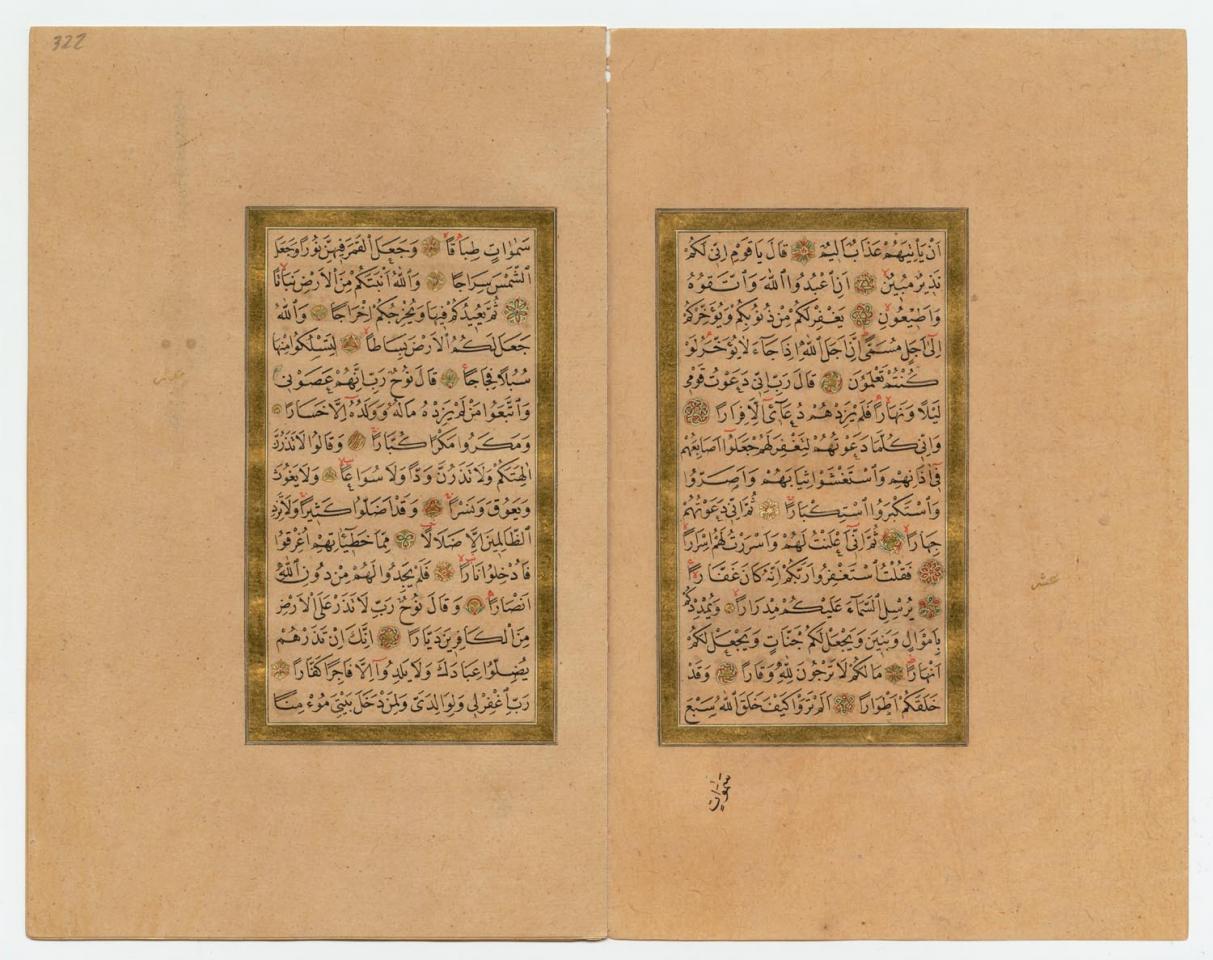 اَنْ يَأْتِيَهُمْ عَذَابٌ اَلِيمٌ قَالَ يَا قَوْمِ اِنِّى لَكُمْ
نَذِيرٌ مُبِينٌ اَنِ اعْبُدُوا اللّٰهَ وَاتَّقُوهُ
وَاَطِيعُونِ يَغْفِرْ لَكُمْ مِنْ ذُنُوبِكُمْ وَيُؤَخِّرْكُمْ
اِلٰى اَجَلٍ مُسَمًّى اِنَّ اَجَلَ اللّٰهِ اِذَا جَاءَ لَا يُؤَخَّرُ لَوْ
كُنْتُمْ تَعْلَمُونَ قَالَ رَبِّ اِنِّى دَعَوْتُ قَوْمِى
لَيْلًا وَنَهَارًا فَلَمْ يَزِدْهُمْ دُعَائِى اِلَّا فِرَارًا
وَاِنِّى كُلَّمَا دَعَوْتُهُمْ لِتَغْفِرَ لَهُمْ جَعَلُوا اَصَابِعَهُمْ
فِى اٰذَانِهِمْ وَاسْتَغْشَوْا ثِيَابَهُمْ وَاَصَرُّوا
وَاسْتَكْبَرُوا اسْتِكْبَارًا ثُمَّ اِنِّى دَعَوْتُهُمْ
جِهَارًا ثُمَّ اِنِّى اَعْلَنْتُ لَهُمْ وَاَسْرَرْتُ لَهُمْ اِسْرَارًا
فَقُلْتُ اسْتَغْفِرُوا رَبَّكُمْ اِنَّهُ كَانَ غَفَّارًا
يُرْسِلِ السَّمَاءَ عَلَيْكُمْ مِدْرَارًا وَيُمْدِدْكُمْ
بِاَمْوَالٍ وَبَنِينَ وَيَجْعَلْ لَكُمْ جَنَّاتٍ وَيَجْعَلْ لَكُمْ
اَنْهَارًا مَا لَكُمْ لَا تَرْجُونَ لِلّٰهِ وَقَارًا وَقَدْ
خَلَقَكُمْ اَطْوَارًا اَلَمْ تَرَوْا كَيْفَ خَلَقَ اللّٰهُ سَبْعَ
سَمٰوَاتٍ
عشر
322
سَمٰوَاتٍ طِبَاقًا وَجَعَلَ الْقَمَرَ فِيهِنَّ نُورًا وَجَعَلَ
الشَّمْسَ سِرَاجًا وَاللّٰهُ اَنْبَتَكُمْ مِنَ الْاَرْضِ نَبَاتًا
ثُمَّ يُعِيدُكُمْ فِيهَا وَيُخْرِجُكُمْ اِخْرَاجًا وَاللّٰهُ
جَعَلَ لَكُمُ الْاَرْضَ بِسَاطًا لِتَسْلُكُوا مِنْهَا
سُبُلًا فِجَاجًا قَالَ نُوحٌ رَبِّ اِنَّهُمْ عَصَوْنِى
وَاتَّبَعُوا مَنْ لَمْ يَزِدْهُ مَالُهُ وَوَلَدُهُ اِلَّا خَسَارًا
وَمَكَرُوا مَكْرًا كُبَّارًا وَقَالُوا لَا تَذَرُنَّ
اٰلِهَتَكُمْ وَلَا تَذَرُنَّ وَدًّا وَلَا سُوَاعًا وَلَا يَغُوثَ
وَيَعُوقَ وَنَسْرًا وَقَدْ اَضَلُّوا كَثِيرًا وَلَا تَزِدِ
الظَّالِمِينَ اِلَّا ضَلَالًا مِمَّا خَطِيئَاتِهِمْ اُغْرِقُوا
فَاُدْخِلُوا نَارًا فَلَمْ يَجِدُوا لَهُمْ مِنْ دُونِ اللّٰهِ
اَنْصَارًا وَقَالَ نُوحٌ رَبِّ لَا تَذَرْ عَلَى الْاَرْضِ
مِنَ الْكَافِرِينَ دَيَّارًا اِنَّكَ اِنْ تَذَرْهُمْ
يُضِلُّوا عِبَادَكَ وَلَا يَلِدُوا اِلَّا فَاجِرًا كَفَّارًا
رَبِّ اغْفِرْ لِى وَلِوَالِدَىَّ وَلِمَنْ دَخَلَ بَيْتِىَ مُؤْمِنًا
عشر